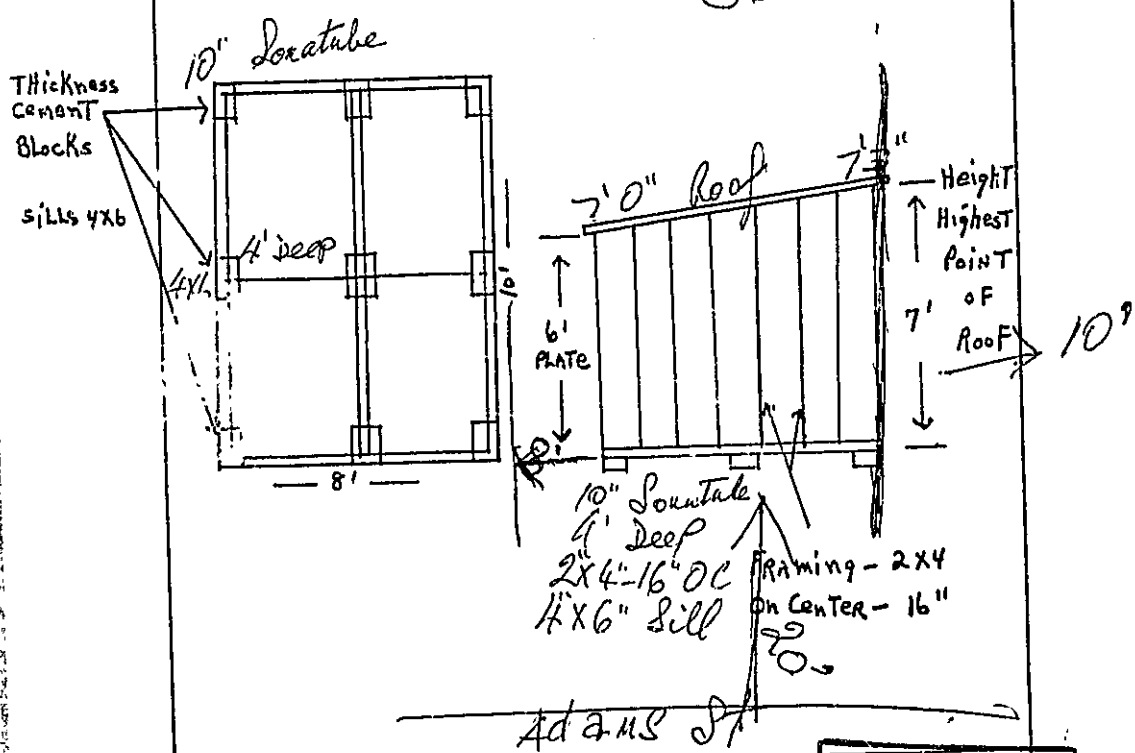 10" Sonatube
THickness
CemenT
BLocks
SiLLS 4X6
4' Deep
10'
8'
7' 0" Roof
HeighT
HighesT
PoinT
oF
RooF
7'
10'
6'
PLATE
10" Sonatube
4' Deep
2"X4"-16" OC
4"X6" Sill
FRAMing - 2X4
On CenTeR - 16"
Adams St